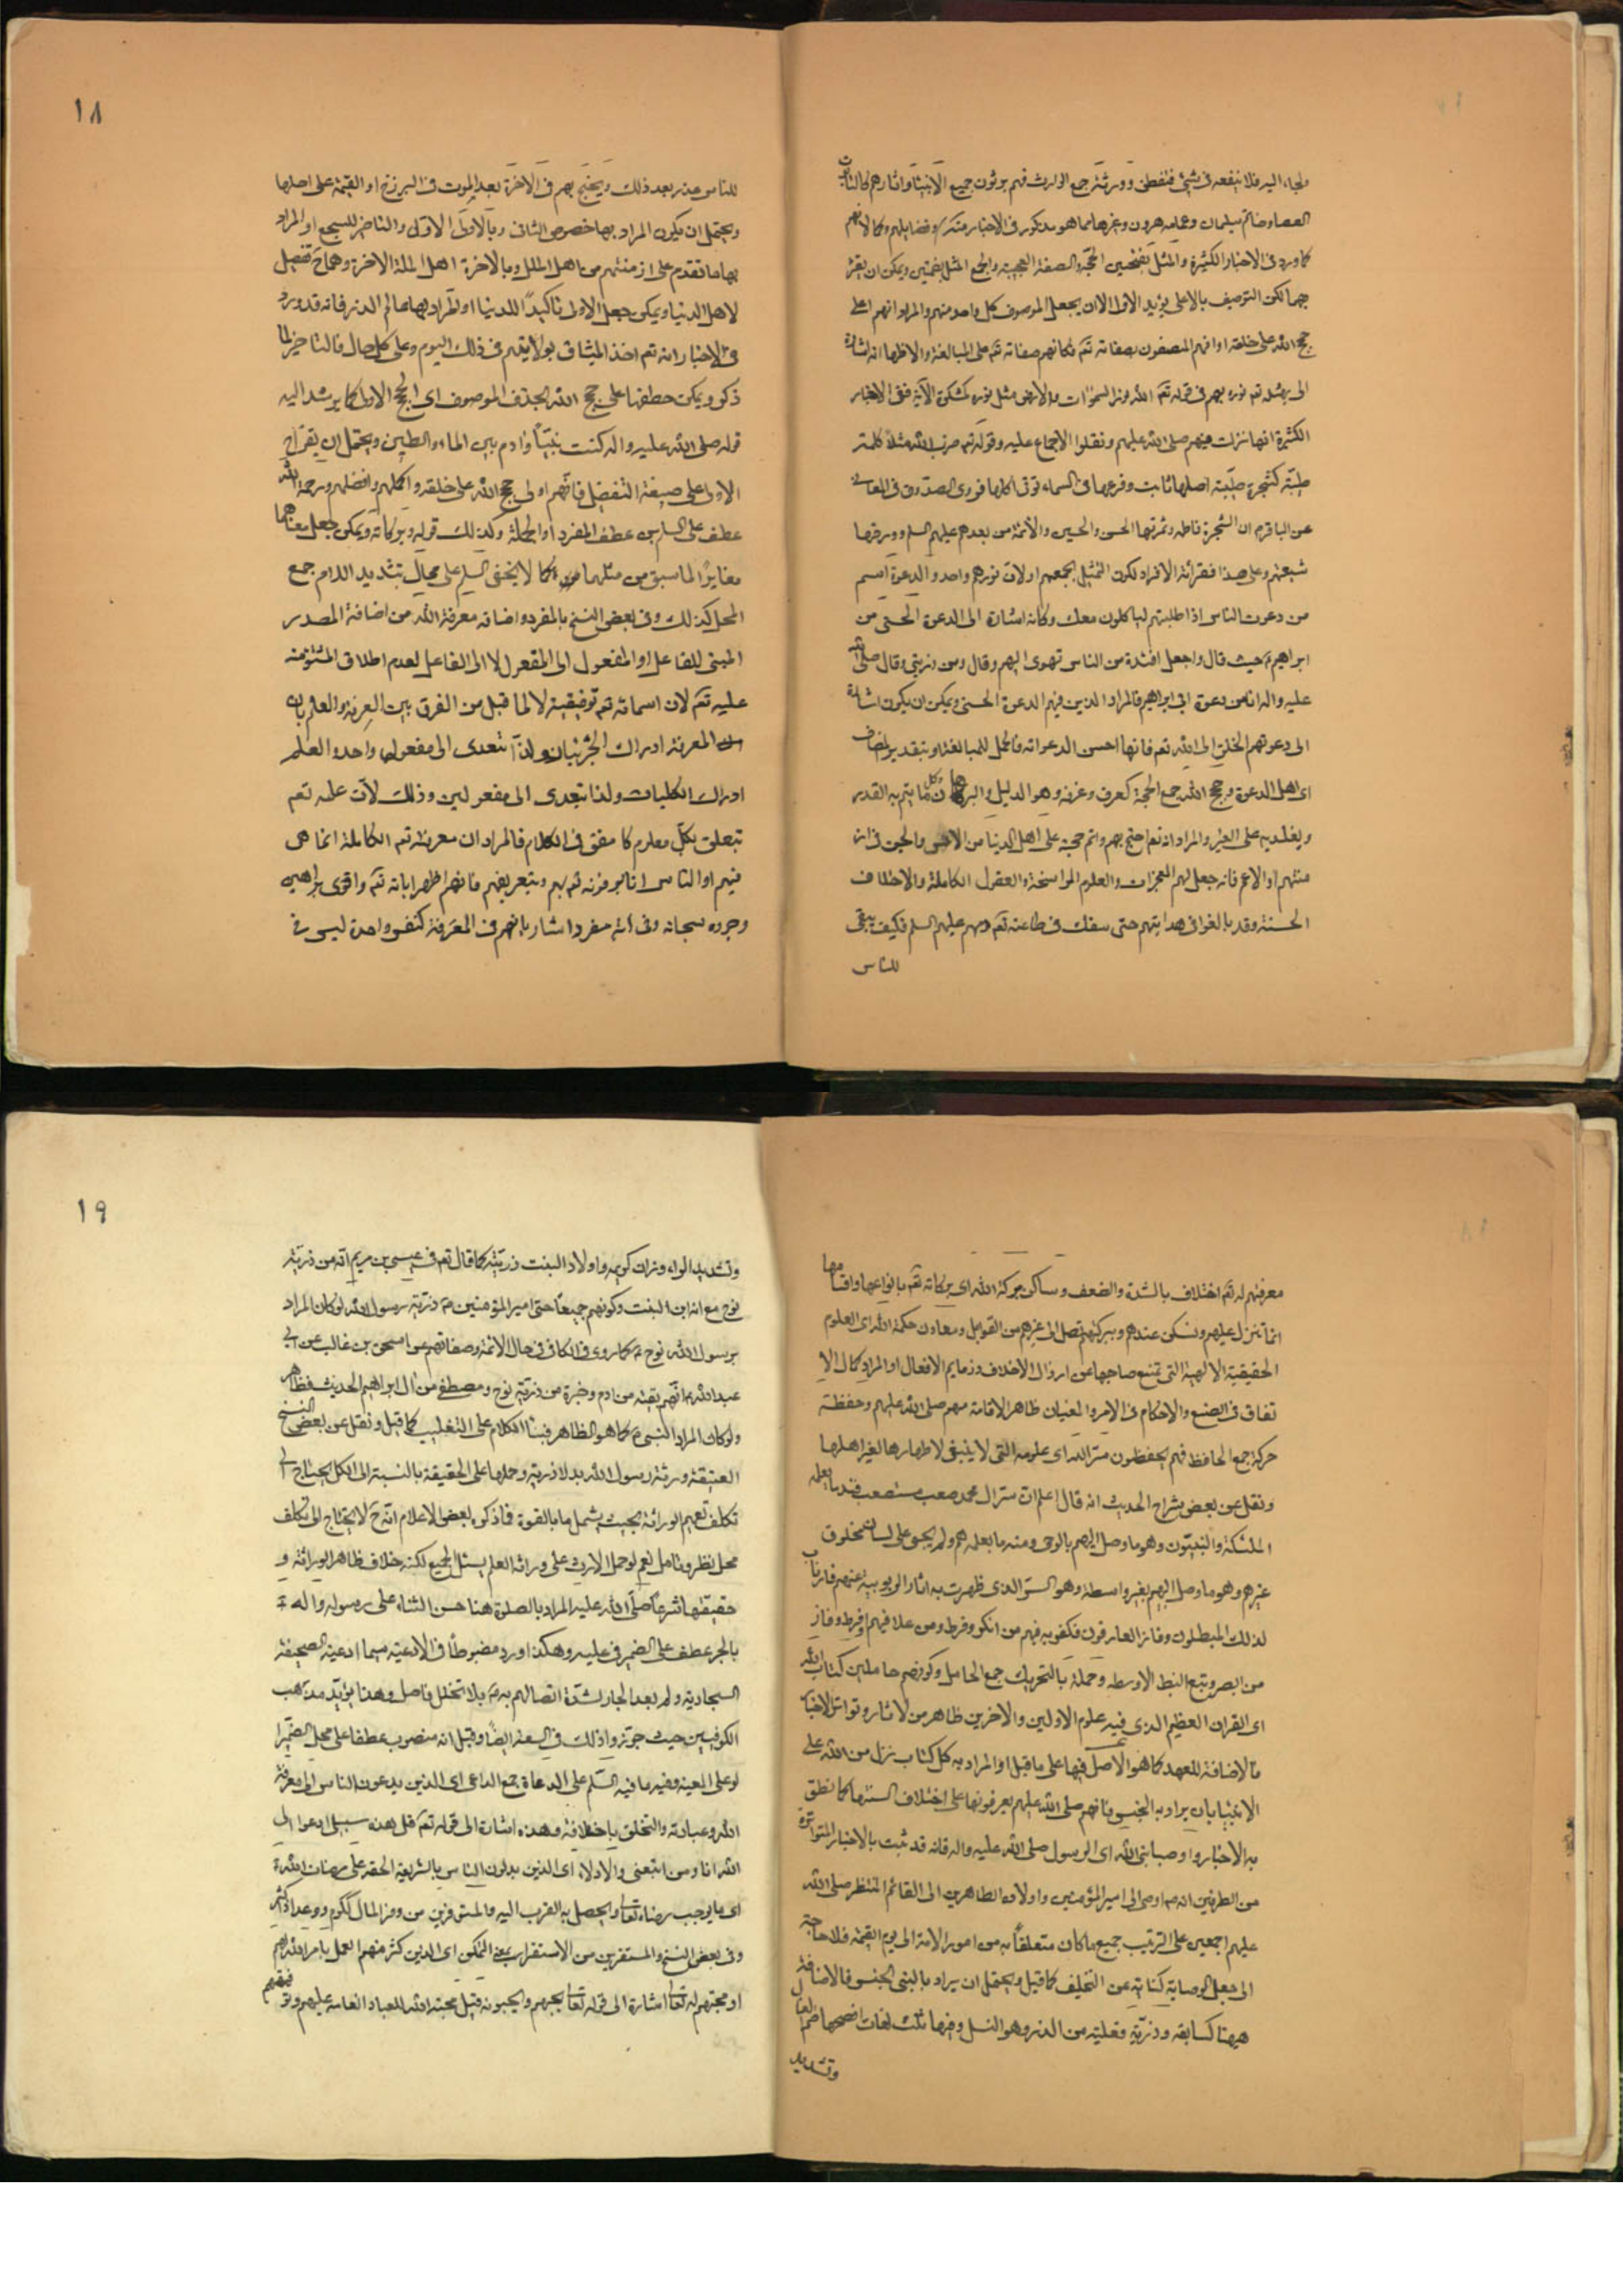 ملجاء اليه فلا ينفعه فى شئ فتفطن وورثة جمع الوارث فهم يرثون جميع الانبياء واثارهم كالتابوت
العصا وخاتم سليمان وعمامه هرون وغيرها مما هو مذكور فى الاخبار وفضايلهم وكمالاتهم
كما ورد فى الاخبار الكثيرة والمثل بفتحتين الحجة والصفة العجيبة والجمع المثل بضمتين ويمكن ان يقرء
بهما لكن التوصيف بالاعلى يؤيد الاول الا ان يجعل الموصوف كل واحد منهم والمراد انهم اعلى
حجج الله على خلقه او انهم المتصفون بصفاته تع فكانهم صفاته تع على المبالغة والاظهر انه اشارة
الى مثله تع نوره بهم فى قوله تع الله نور السموات والارض مثل نوره كمشكوة الآية ففى الاخبار
الكثيرة انها نزلت فيهم صلى الله عليهم ونقلوا الاجماع عليه وقوله تع ضرب الله مثلا كلمة
طيبة كشجرة طيبة اصلها ثابت وفرعها فى السماء تؤتى اكلها فروى الصدوق فى المعانى
عن الباقر ان الشجرة فاطمه وثمرتها الحسن والحسين والائمة من بعدهم عليهم السلم وورقها
شيعتهم وعلى هذا فقرائة الافراد لكون التمثيل بجمعهم او لان نورهم واحد والدعوة اسم
من دعوت الناس اذا طلبتهم لياكلون معك وكانه اشارة الى الدعوة الحسنى من
ابراهيم حيث قال واجعل افئدة من الناس تهوى اليهم وقال ومن ذريتى وقال صلى الله
عليه واله انا من دعوة ابى ابراهيم فالمراد الذين فيهم الدعوة الحسنى ويمكن ان يكون اشارة
الى دعوتهم الخلق الى الله تعم فانها احسن الدعوات فالحمل للمبالغة او بتقدير المضاف
اى اهل الدعوة وحجج الله جمع الحجة كغرف وغرفه وهو الدليل والبرهان وكل ما يتم به القدر
ويغلب به على الغير والمراد انه تع احتج بهم واتم حجته على اهل الدنيا من الانس والجن فى ازمنتهم
منتهم او الاعم فانه جعل لهم المعجزات والعلوم الراسخة والعقول الكاملة والاخلاق
الحسنة وقد بالغوا فى هدايتهم حتى سفك فى طاعته تع دمهم عليهم السلم فكيف يبقى
للناس
١٨
للناس عذر بعد ذلك ويحتج بهم فى الاخرة بعد الموت فى البرزخ او القيمة على اهلها
ويحتمل ان يكون المراد بها خصوص الثانى وبالاولى الاولى والتاخير للسجع او المراد
بها ما تقدم على ازمنتهم من اهل الملل وبالاخرة اهل الملة الاخرة وهما ح تفصيل
لاهل الدنيا ويمكن جعل الاولى تاكيدا للدنيا او المراد بها عالم الذر فانه قد ورد
فى الاخبار انه تع اخذ الميثاق بولايتهم فى ذلك اليوم وعلى كل حال فالتاخير لما
ذكر ويمكن عطفها على حجج الله بحذف الموصوف اى الحجج الاولى كما يرشد اليه
قوله صلى الله عليه واله كنت نبيا وادم بين الماء والطين ويحتمل ان يقرء ح
الاولى على صيغة التفضيل فانهم اولى حجج الله على خلقه واكملهم وافضلهم ورحمة الله
عطف على السلم من عطف المفرد او الجملة وكذلك قوله وبركاته ويمكن جعل معناهما
مغايرا لما سبق من مثلهما كما لا يخفى السلم على محال بتشديد اللام جمع
المحل كذلك وفى بعض النسخ بالمفرد واضافة معرفة الله من اضافة المصدر
المبنى للفاعل او المفعول الى المفعول لا الى الفاعل لعدم اطلاق المشتق منه
عليه تع لان اسمائه تع توقيفية لا لما قيل من الفرق بين المعرفة والعلم بان
المعرفة ادراك الجزئيات ولذا تتعدى الى مفعول واحد والعلم
ادراك الكليات ولذا تتعدى الى مفعولين وذلك لان علمه تعم
تتعلق بكل معلوم كما مفق فى الكلام فالمراد ان معرفته تع الكاملة انما هى
فيهم او الناس انما عرفوه تع بهم وبتعريفهم فانهم اظهر اياته تع واقوى براهين
وجوده سبحانه وفى مفردا اشار بانهم فى المعرفة كنفس واحدة ليس فى
معرفتهم له تع اختلاف بالشدة والضعف ومساكن بركة الله اى بركاته تع بانواعها واقسامها
انما تنزل عليهم وتسكن عندهم وببركتهم تصل الى غيرهم من القوابل ومعادن حكمة الله اى العلوم
الحقيقية الالهية التى تمنع صاحبها عن ارذال الاخلاق وذمايم الافعال او المراد كمال الا
تفاق فى الصنع والاحكام فى الامر والمعنيان ظاهر الاقامة مهم صلى الله عليهم وحفظة
حركة جمع الحافظ فهم يحفظون سر الله اى علومه التى لا ينبغى لاظهارها لغير اهلها
ونقل عن بعض شراح الحديث انه قال اعلم ان سر ال محمد صعب مستصعب فمنه ما يعلمه
الملئكة والنبيون وهو ما وصل اليهم بالوحى ومنه ما يعلمه هم ولم يجر على لسان مخلوق
غيرهم وهو ما وصل اليهم بغير واسطة وهو السر الذى ظهرت به اثار الربوبية عنهم فارتاب
لذلك المبطلون وفاز العارفون فكفر به فيهم من انكر وفرط ومن علا فيهم وافرط وفاز
من ابصر وتبع النمط الاوسط وحملة بالتحريك جمع الحامل وكونهم حاملين كتاب الله
اى القران العظيم الذى فيه علوم الاولين والاخرين ظاهر من الاثار وتواتر الاخبار
فالاضافة للعهد كما هو الاصل فيها على ما قيل او المراد به كل كتاب نزل من الله على
الانبياء بان يراد به الجنس فانهم صلى الله عليهم يعرفونها على اختلاف السنتها كما نطق
به الاخبار واوصياء نبى الله اى الرسول صلى الله عليه واله فانه قد ثبت بالاخبار المتواترة
من الطرفين انه ص اوصى الى امير المؤمنين واولاده الطاهرين الى القائم المنتظر صلى الله
عليهم اجمعين على الترتيب جميع ما كان متعلقا به من امور الامة الى يوم القيمة فلا حاجة
الى جعل الوصاية كناية عن التخليف كما قيل ويحتمل ان يراد بالنبى الجنس فالاضافة
ههنا كسابقه وذرية فعلية من الذر وهو النسل وفيها ثلث لغات افصحها ضم الذال
وتشديد
١٩
وتشديد الراء وزان كريمه واولاد البنت ذرية كما قال تع فى عيسى بن مريم انه من ذرية
نوح مع انه ابن البنت وكونهم جميعا حتى امير المؤمنين ع ذرية رسول الله لو كان المراد
برسول الله نوح ع كما روى فى الكافى فى حال الائمة وصفاتهم عن اسحق بن غالب عن ابى
عبد الله ع انهم بقية من ادم وخيرة من ذرية نوح ومصطفى من ال ابراهيم الحديث فظاهر
ولو كان المراد النبى ص كما هو الظاهر فبناء الكلام على التغليب كما قيل ونقل عن بعض النسخ
العتيقة ورثة رسول الله بدلا ذرية وحملها على الحقيقة بالنسبة الى الكل يحتاج الى
تكلف تعميم الوراثة بحيث يشمل ما بالقوة فما ذكره بعض الاعلام انه ح لا يحتاج الى تكلف
محل نظر وتامل نعم لو حمل الارث على وراثة العلم يشمل الجميع لكنه خلاف ظاهر الوراثة و
حقيقتها شرعا صلى الله عليه المراد بالصلوة هنا حسن الثناء على رسوله واله
بالجر عطف على الضمير فى عليه وهكذا ورد مضبوطا فى الادعية سيما ادعية الصحيفة
السجادية ولم يعد الجار لشدة اتصالهم به ص بلا تخلل فاصل وهذا يؤيد مذهب
الكوفيين حيث جوزوا ذلك فى السعة ايضا وقيل انه منصوب عطفا على محل الضمير
او على المعية وفيه ما فيه السلم على الدعاة جمع الداعى اى الذين يدعون الناس الى معرفة
الله وعبادته والتخلق باخلاقه وهذه اشارة الى قوله تع قل هذه سبيلى ادعوا الى
الله انا ومن اتبعنى والادلاء اى الذين يدلون الناس بالشريعة الحقه على مرضات الله
اى ما يوجب رضاه تعالى ويحصل به القرب اليه والمستوفرين من وفر المال ككرم ووعد اذا كثر
وفى بعض النسخ والمستقرين من الاستقرار بمعنى التمكن اى الذين كثر منهم العمل بامر الله
او محبتهم له تعالى اشارة الى قوله تعالى يحبهم ويحبونه قيل محبة الله للعباد انعامه عليهم وتوفيقهم